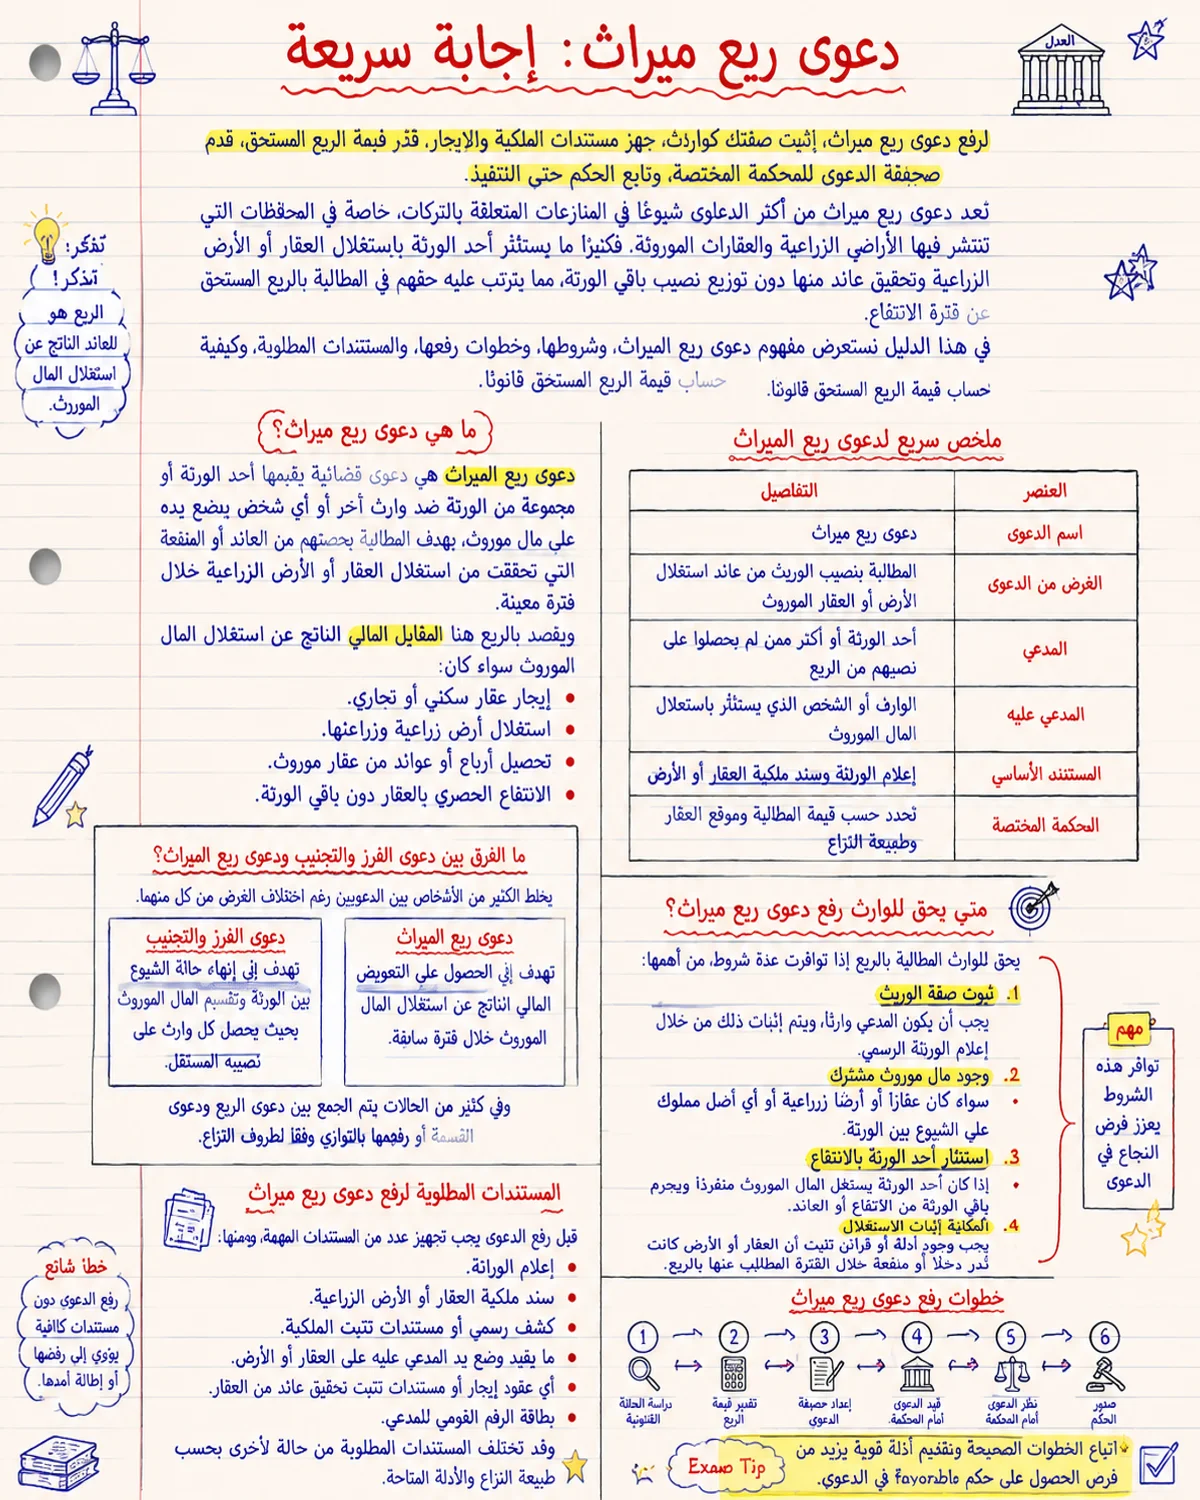 دعوى ريع ميراث: إجابة سريعة
العدل
لرفع دعوى ريع ميراث، إثبت صفتك كوارث، جهز مستندات الملكية والإيجار، قدّر قيمة الريع المستحق، قدم
الدعوى للمحكمة المختصة، وتابع الحكم حتى التنفيذ.
تُعد دعوى ريع ميراث من أكثر الدعلوى شيوعًا في المنازعات المتعلقة بالتركات، خاصة في المحقظات التي
تنتشر فيها الأراضي الزراعية والعقارات الموروثة. فكثيرًا ما يستئثر أحد الورثة باستغلال العقار أو الأرض
الزراعية وتحقيق عاند منها دون توزيع نصيب باقي الورتة، مما يترتب عليه حقهم في المطالبة بالريع المستحق
عن قترة الانتفاع.
في هذا الدليل نستعرض مفهوم دعوى ريع الميراث، وشروطها، وخطوات رفعها، والمستندات المطلوبة، وكيفية
حساب قيمة الريع المستحق قانونًا.
حساب قيمة الريع المستخق قانونًا.
تذكر!
تذكر!
الريع هو
للعاند الناتج عن
استغلال المال
الموررث.
ملخص سريع لدعوى ريع الميراث
العنصر التفاصيل
اسم الدعوى دعوى ريع ميراث
الغرض من الدعوى المطالبة بنصيب الوريث من عاند استغلال
الأرض أو العقار الموروث
المدعي أحد الورثة أو أكثر ممن لم يحصلوا على
نصيهم من الريع
المدعي عليه الوارف أو الشخص الذي يستئثر باستعلال
المال الموروث
المستنند الأساسي إعلام الورثة وسند ملكية العقار أو الأرض
المحكمة المختصة تحدد حسب قيمة المطالبة وموقع العقار
وطبيعة النزاع
ما هي دعوى ريع ميراث؟
دعوى ريع الميراث هي دعوى قضائية يقيمها أحد الورثة أو
مجموعة من الورتة ضد وارث أخر أو أي شخض يضع يده
علي مال موروث، بهدف المطالبة بحصتهم من العاند أو المنفعة
التي تحققت من استغلال العقار أو الأرض الزراعية خلال
فترة معينة.
ويقصد بالريع هنا المقابل المالي الناتج عن استغلال المال
الموروث سواء كان:
• إيجار عقار سكني أو تجاري.
• استغلال أرض زراعية وزراعتها.
• تحصيل أرباع أو عوائد من عقار موروث.
• الانتفاع الحصري بالعقار دون باقي الورثة.
ما الفرق بين دعوى الفرز والتجنيب ودعوى ريع الميراث؟
يخلط الكثير من الأشخاص بين الدعويين رغم اختلاف الغرض من كل منهما.
دعوى ريع الميراث
تهدف إلي الحصول علي التعويض
المالي الناتج عن استغلال المال
الموروث خلال فترة سابقة.
دعوى الفرز والتجنيب
تهدف إلي إنهاء حالة الشيوع
بين الورثة وتقسيم المال الموروث
بحيث يحصل كل وارث على
نصيبه المستقل.
وفي كثير من الحالات يتم الجمع بين دعوى الريع ودعوى
القسمة أو رفعها بالتوازي وفقا لطروف النزاع.
متي يحق للوارث رفع دعوى ريع ميراث؟
يحق للوارث المطالبة بالريع إذا توافرت عدة شروط، من أهمها:
1. ثبوت صفة الوريث
يجب أن يكون المدعي وارثا، ويتم إثبات ذلك من خلال
إعلام الورثة الرسمي.
2. وجود مال موروث مشترك
• سواء كان عقارًا أو أرضًا زراعية أو أي أضل مملوك
علي الشيوع بين الورتة.
3. استئثار أحد الورثة بالانتقاع
• إذا كان أحد الورثة يستغل المال الموروث منفردًا ويجرم
باقي الورثة من الاتفاع أو العاند.
4. امكانية إثبات الاستغلال
يجب وجود أدلة أو قرائن تثبت أن العقار أو الأرض كانت
تُدر دخلًا أو منفعة خلال الفترة عنها بالريع.
مهم
توافر هذه
الشروط
يعزز فرض
النجاع في
الدعوى
المستندات المطلوبة لرفع دعوى ريع ميراث
قبل رفع الدعوى يجب تجهيز عدد من المستندات المهمة، ومنها:
• إعلام الوراثة.
• سند ملكية العقار أو الأرض الزراعية.
• كشف رسمي أو مستندات تثبت الملكية.
• ما يقيد وضع يد المدعي عليه على العقار أو الأرض.
• أي عقود إيجار أو مستندات تثبت تحقيق عاند من العقار.
• بطاقة الرقم القومي للمدعي.
وقد تختلف المستندات المطلوبة من حالة لأخرى بحسب
طبيعة النزاع والأدلة المتاحة.
خطأ شائع
رفع الدعوى دون
مستندات كافية
يؤدي إلي رفضها
أو إطالة أمدها.
خطوات رفع دعوى ريع ميراث
1 2 3 4 5 6
دراسة الحالة
القنونية
تقدير قيمة
الريع
إعداد صحيفة
الدعوي
قيد الدعوى
أمام المحكمة.
نظر الدعوى
أمام المحكمة
صدور
الحكم
اتباع الخطوات الصحيحة وتقديم أدلة قوية يزيد من
فرص الحصول على حكم favorable في الدعوى.
Exam Tip